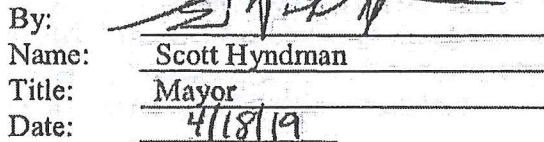 By:
Name: Scott Hyndman
Title: Mayor
Date: 4/18/19